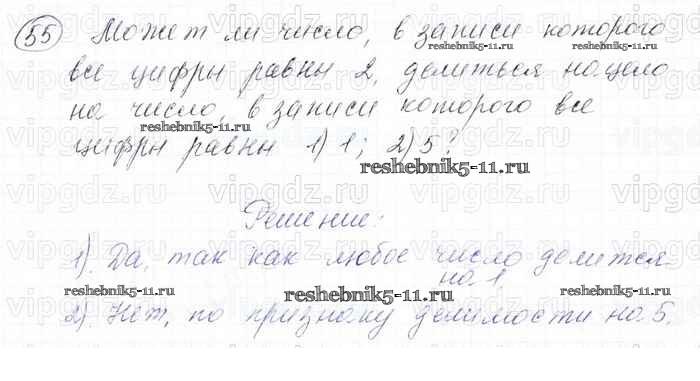 55 Может ли число, в записи которого
все цифры равны 2, делиться нацело
на число, в записи которого все
цифры равны 1) 1; 2) 5?
Решение:
1). Да, так как любое число делится
на 1.
2). Нет, по признаку делимости на 5.
vipgdz.ru vipgdz.ru vipgdz.ru vipgdz.ru
reshebnik5-11.ru
reshebnik5-11.ru
reshebnik5-11.ru
reshebnik5-11.ru
reshebnik5-11.ru
reshebnik5-11.ru